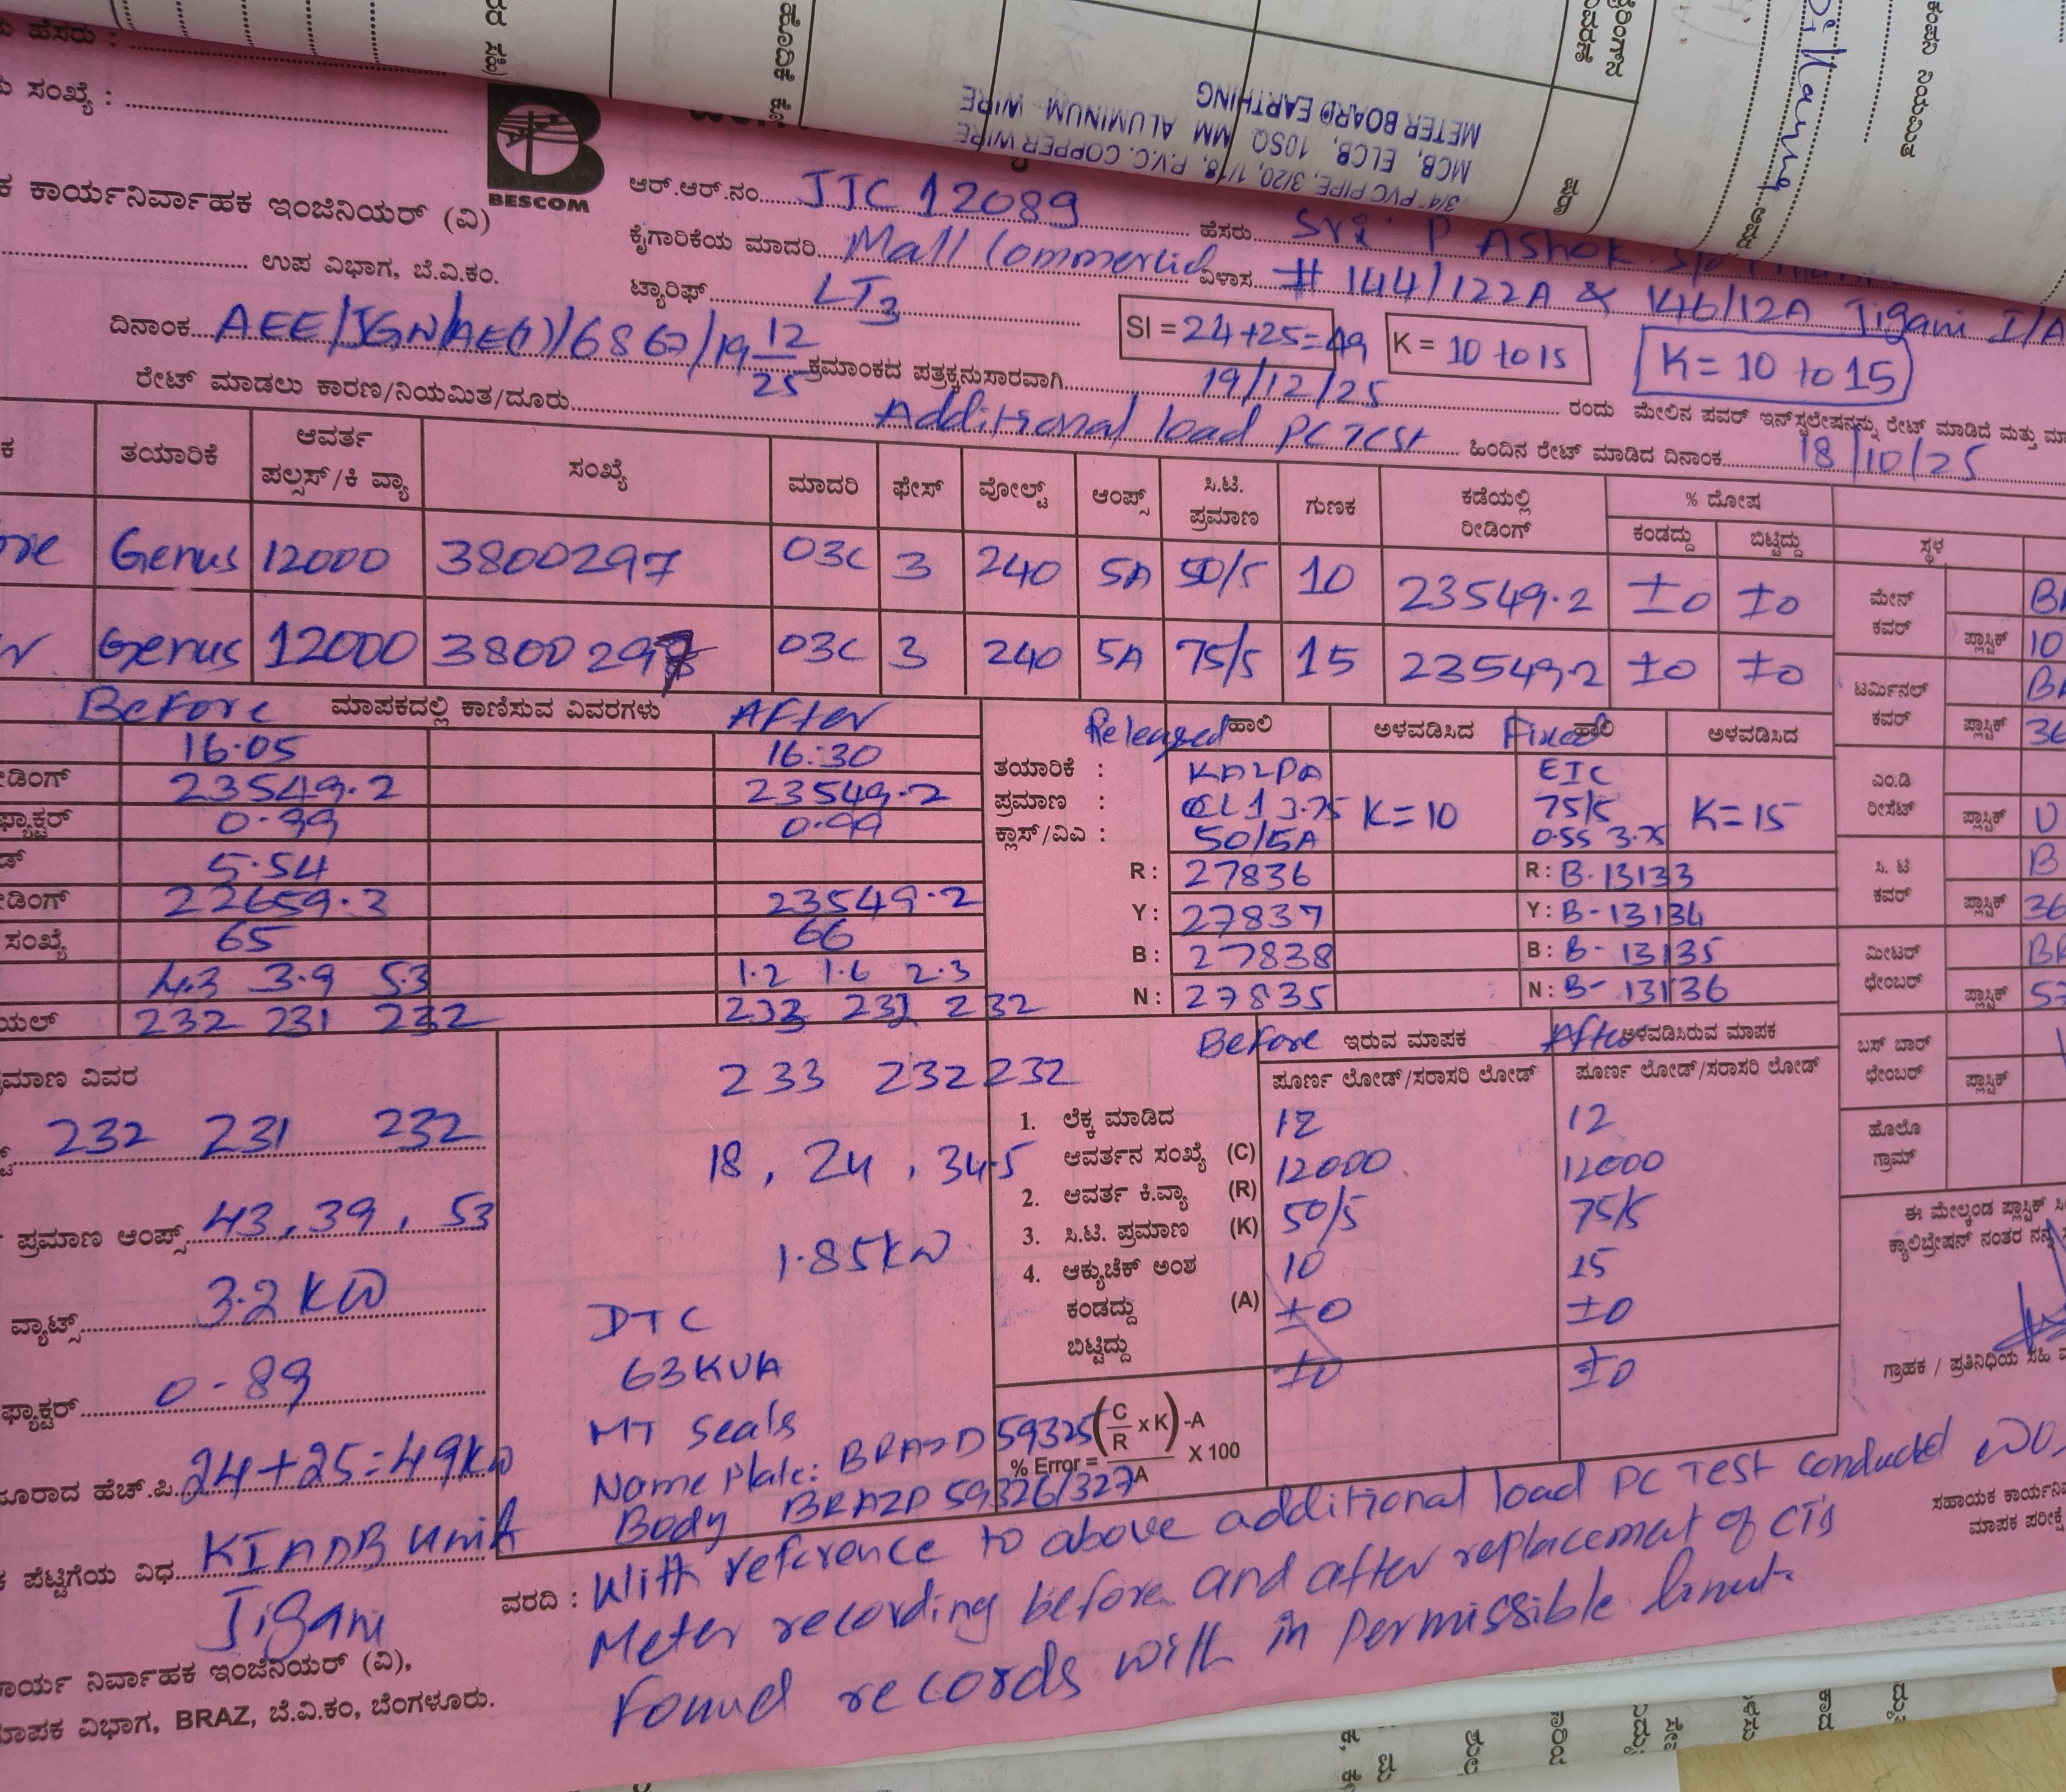 BESCOM
METER BOARD EARTHING
MCB, ELCB, 10SQ MM ALUMINUM WIRE
3/4" PVC PIPE, 3/20, 1/18, P.V.C. COPPER WIRE
ಸಂಖ್ಯೆ :
ಕಾರ್ಯನಿರ್ವಾಹಕ ಇಂಜಿನಿಯರ್ (ವಿ)
ಉಪ ವಿಭಾಗ, ಬೆ.ವಿ.ಕಂ.
ಆರ್.ಆರ್.ನಂ. JJC 12089 ಹೆಸರು Sri. P Ashok
ಕೈಗಾರಿಕೆಯ ಮಾದರಿ Mall Commercial ವಿಳಾಸ # 144/122A & 146/12A Jigani I/A
ಟ್ಯಾರಿಫ್ LT3
SI = 24+25=49 K = 10 to 15 K = 10 to 15
ದಿನಾಂಕ AEE/JGN/AE(1)/6867/19 12/25 ಕ್ರಮಾಂಕದ ಪತ್ರಕ್ಕನುಸಾರವಾಗಿ 19/12/25 ರಂದು ಮೇಲಿನ ಪವರ್ ಇನ್‌ಸ್ಟಲೇಷನ್ನನ್ನು ರೇಟ್ ಮಾಡಿದೆ ಮತ್ತು
ರೇಟ್ ಮಾಡಲು ಕಾರಣ/ನಿಯಮಿತ/ದೂರು Additional load PC Test ಹಿಂದಿನ ರೇಟ್ ಮಾಡಿದ ದಿನಾಂಕ 18/10/25
ತಯಾರಿಕೆ ಆವರ್ತ ಪಲ್ಸಸ್/ಕಿ ವ್ಯಾ ಸಂಖ್ಯೆ ಮಾದರಿ ಫೇಸ್ ವೋಲ್ಟ್ ಆಂಪ್ಸ್ ಸಿ.ಟಿ. ಪ್ರಮಾಣ ಗುಣಕ ಕಡೆಯಲ್ಲಿ ರೀಡಿಂಗ್ % ದೋಷ ಕಂಡದ್ದು ಬಿಟ್ಟಿದ್ದು ಸ್ಥಳ
Genus 12000 3800297 03C 3 240 5A 50/5 10 23549.2 ±0 ±0
Genus 12000 3800297 03C 3 240 5A 75/5 15 23549.2 ±0 ±0
ಮೇನ್ ಕವರ್ ಪ್ಲಾಸ್ಟಿಕ್
ಟರ್ಮಿನಲ್ ಕವರ್ ಪ್ಲಾಸ್ಟಿಕ್
ಎಂ.ಡಿ ರೀಸೆಟ್ ಪ್ಲಾಸ್ಟಿಕ್
ಸಿ. ಟಿ ಕವರ್ ಪ್ಲಾಸ್ಟಿಕ್
ಮೀಟರ್ ಛೇಂಬರ್ ಪ್ಲಾಸ್ಟಿಕ್
ಬಸ್ ಬಾರ್ ಛೇಂಬರ್ ಪ್ಲಾಸ್ಟಿಕ್
ಹೊಲೊ ಗ್ರಾಮ್
Before ಮಾಪಕದಲ್ಲಿ ಕಾಣಿಸುವ ವಿವರಗಳು After
16.05 16:30
23549.2 23549.2
0.99 0.99
5.54
22659.3 23549.2
ಸಂಖ್ಯೆ 65 66
4.3 3.9 5.3 1.2 1.6 2.3
232 231 232 233 232 232
Released ಹಾಲಿ ಅಳವಡಿಸಿದ Fixed ಹಾಲಿ ಅಳವಡಿಸಿದ
ತಯಾರಿಕೆ : KALPA EIC
ಪ್ರಮಾಣ : CL 1 3.75 K=10 75/5 K=15
ಕ್ಲಾಸ್/ವಿಎ : 50/5A 0.5S 3.75
R: 27836 R: B-13133
Y: 27837 Y: B-13134
B: 27838 B: B-13135
N: 27835 N: B-13136
232 231 232
ಪ್ರಮಾಣ ಆಂಪ್ಸ್ 43, 39, 53
ವ್ಯಾಟ್ಸ್ 3.2 KW
0-89
24+25=49KW
ಪೆಟ್ಟಿಗೆಯ ವಿಧ KIADB Unit
Jigani
233 232 232
18, 24, 34.5
1.85KW
DTC
63KVA
MT Seals
Name Plate: BRAZD 59325
Body BRAZD 59326/327
Before ಇರುವ ಮಾಪಕ After ಅಳವಡಿಸಿರುವ ಮಾಪಕ
ಪೂರ್ಣ ಲೋಡ್/ಸರಾಸರಿ ಲೋಡ್ ಪೂರ್ಣ ಲೋಡ್/ಸರಾಸರಿ ಲೋಡ್
1. ಲೆಕ್ಕ ಮಾಡಿದ 12 12
ಆವರ್ತನ ಸಂಖ್ಯೆ (C) 12000 12000
2. ಆವರ್ತ ಕಿ.ವ್ಯಾ (R) 50/5 75/5
3. ಸಿ.ಟಿ. ಪ್ರಮಾಣ (K) 10 15
4. ಆಕ್ಯುಚೆಕ್ ಅಂಶ
ಕಂಡದ್ದು (A) ±0 ±0
ಬಿಟ್ಟಿದ್ದು ±0 ±0
% Error = (C/R x K) -A / A X 100
ಗ್ರಾಹಕ / ಪ್ರತಿನಿಧಿಯ ಸಹಿ
ವರದಿ : With reference to above additional load PC Test conducted
Meter recording before and after replacement of CTs
Found records with in permissible limit.
ಕಾರ್ಯ ನಿರ್ವಾಹಕ ಇಂಜಿನಿಯರ್ (ವಿ),
ಮಾಪಕ ವಿಭಾಗ, BRAZ, ಬೆ.ವಿ.ಕಂ, ಬೆಂಗಳೂರು.